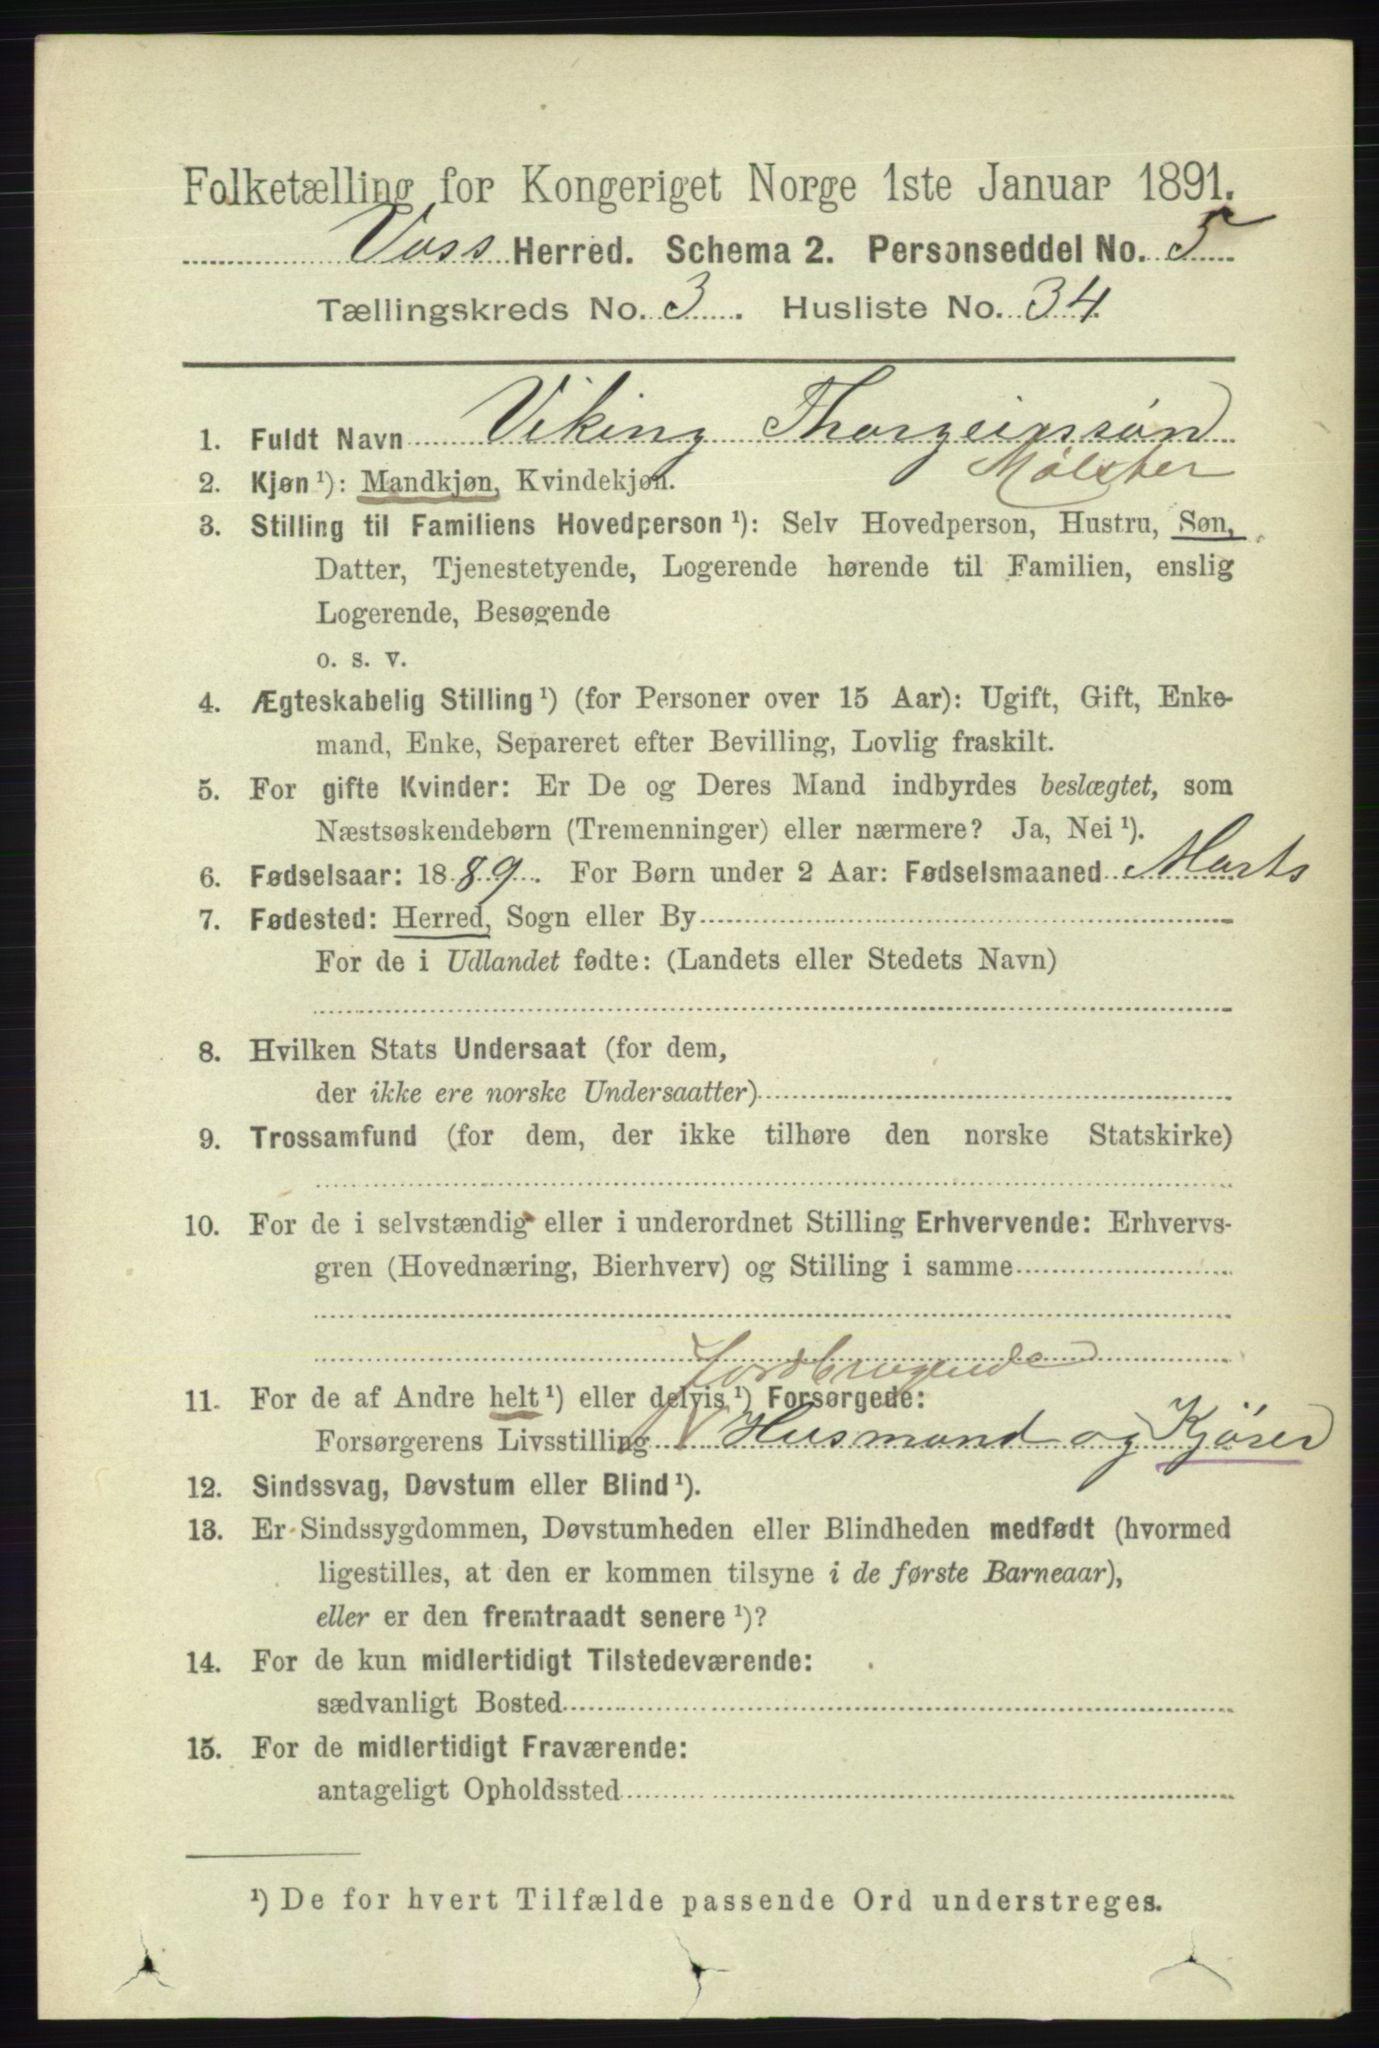 Folketælling for Kongeriget Norge 1ste Januar 1891.
Voss Herred. Schema 2. Personseddel No. 5
Tællingskreds No. 3. Husliste No. 34.
1. Fuldt Navn Viking Thorgeirssøn
Mølster
2. Kjøn ¹): Mandkjøn, Kvindekjøn.
3. Stilling til Familiens Hovedperson ¹): Selv Hovedperson, Hustru, Søn,
Datter, Tjenestetyende, Logerende hørende til Familien, enslig
Logerende, Besøgende
o. s. v.
4. Ægteskabelig Stilling ¹) (for Personer over 15 Aar): Ugift, Gift, Enke-
mand, Enke, Separeret efter Bevilling, Lovlig fraskilt.
5. For gifte Kvinder: Er De og Deres Mand indbyrdes beslægtet, som
Næstsøskendebørn (Tremenninger) eller nærmere? Ja, Nei ¹).
6. Fødselsaar: 1889. For Børn under 2 Aar: Fødselsmaaned Marts
7. Fødested: Herred, Sogn eller By
For de i Udlandet fødte: (Landets eller Stedets Navn)
8. Hvilken Stats Undersaat (for dem,
der ikke ere norske Undersaatter)
9. Trossamfund (for dem, der ikke tilhøre den norske Statskirke)
10. For de i selvstændig eller i underordnet Stilling Erhvervende: Erhvervs-
gren (Hovednæring, Bierhverv) og Stilling i samme
Jordbrugende
11. For de af Andre helt ¹) eller delvis ¹) Forsørgede:
Forsørgerens Livsstilling Husmand og Kjører
12. Sindssvag, Døvstum eller Blind ¹).
13. Er Sindssygdommen, Døvstumheden eller Blindheden medfødt (hvormed
ligestilles, at den er kommen tilsyne i de første Barneaar),
eller er den fremtraadt senere ¹)?
14. For de kun midlertidigt Tilstedeværende:
sædvanligt Bosted
15. For de midlertidigt Fraværende:
antageligt Opholdssted
¹) De for hvert Tilfælde passende Ord understreges.